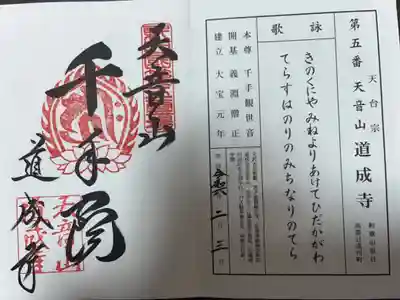 第五番
天台宗
天音山 道成寺
詠歌
きのくにや みねよりあけてひだかがわ
てらすはのりのみちなりのてら
本尊 千手観世音
開基 義淵僧正
建立 大宝元年
天音山
千手院
道成寺